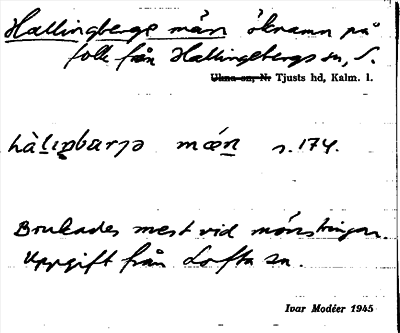 Hallingbergs män öknamn på
folk från Hallingebergs sn, S.
Ukna sn, N. Tjusts hd, Kalm. l.
hàlıŋbarjə mæn s. 174.
Brukades mest vid mönstringar.
Uppgift från Lofta sn.
Ivar Modéer 1945